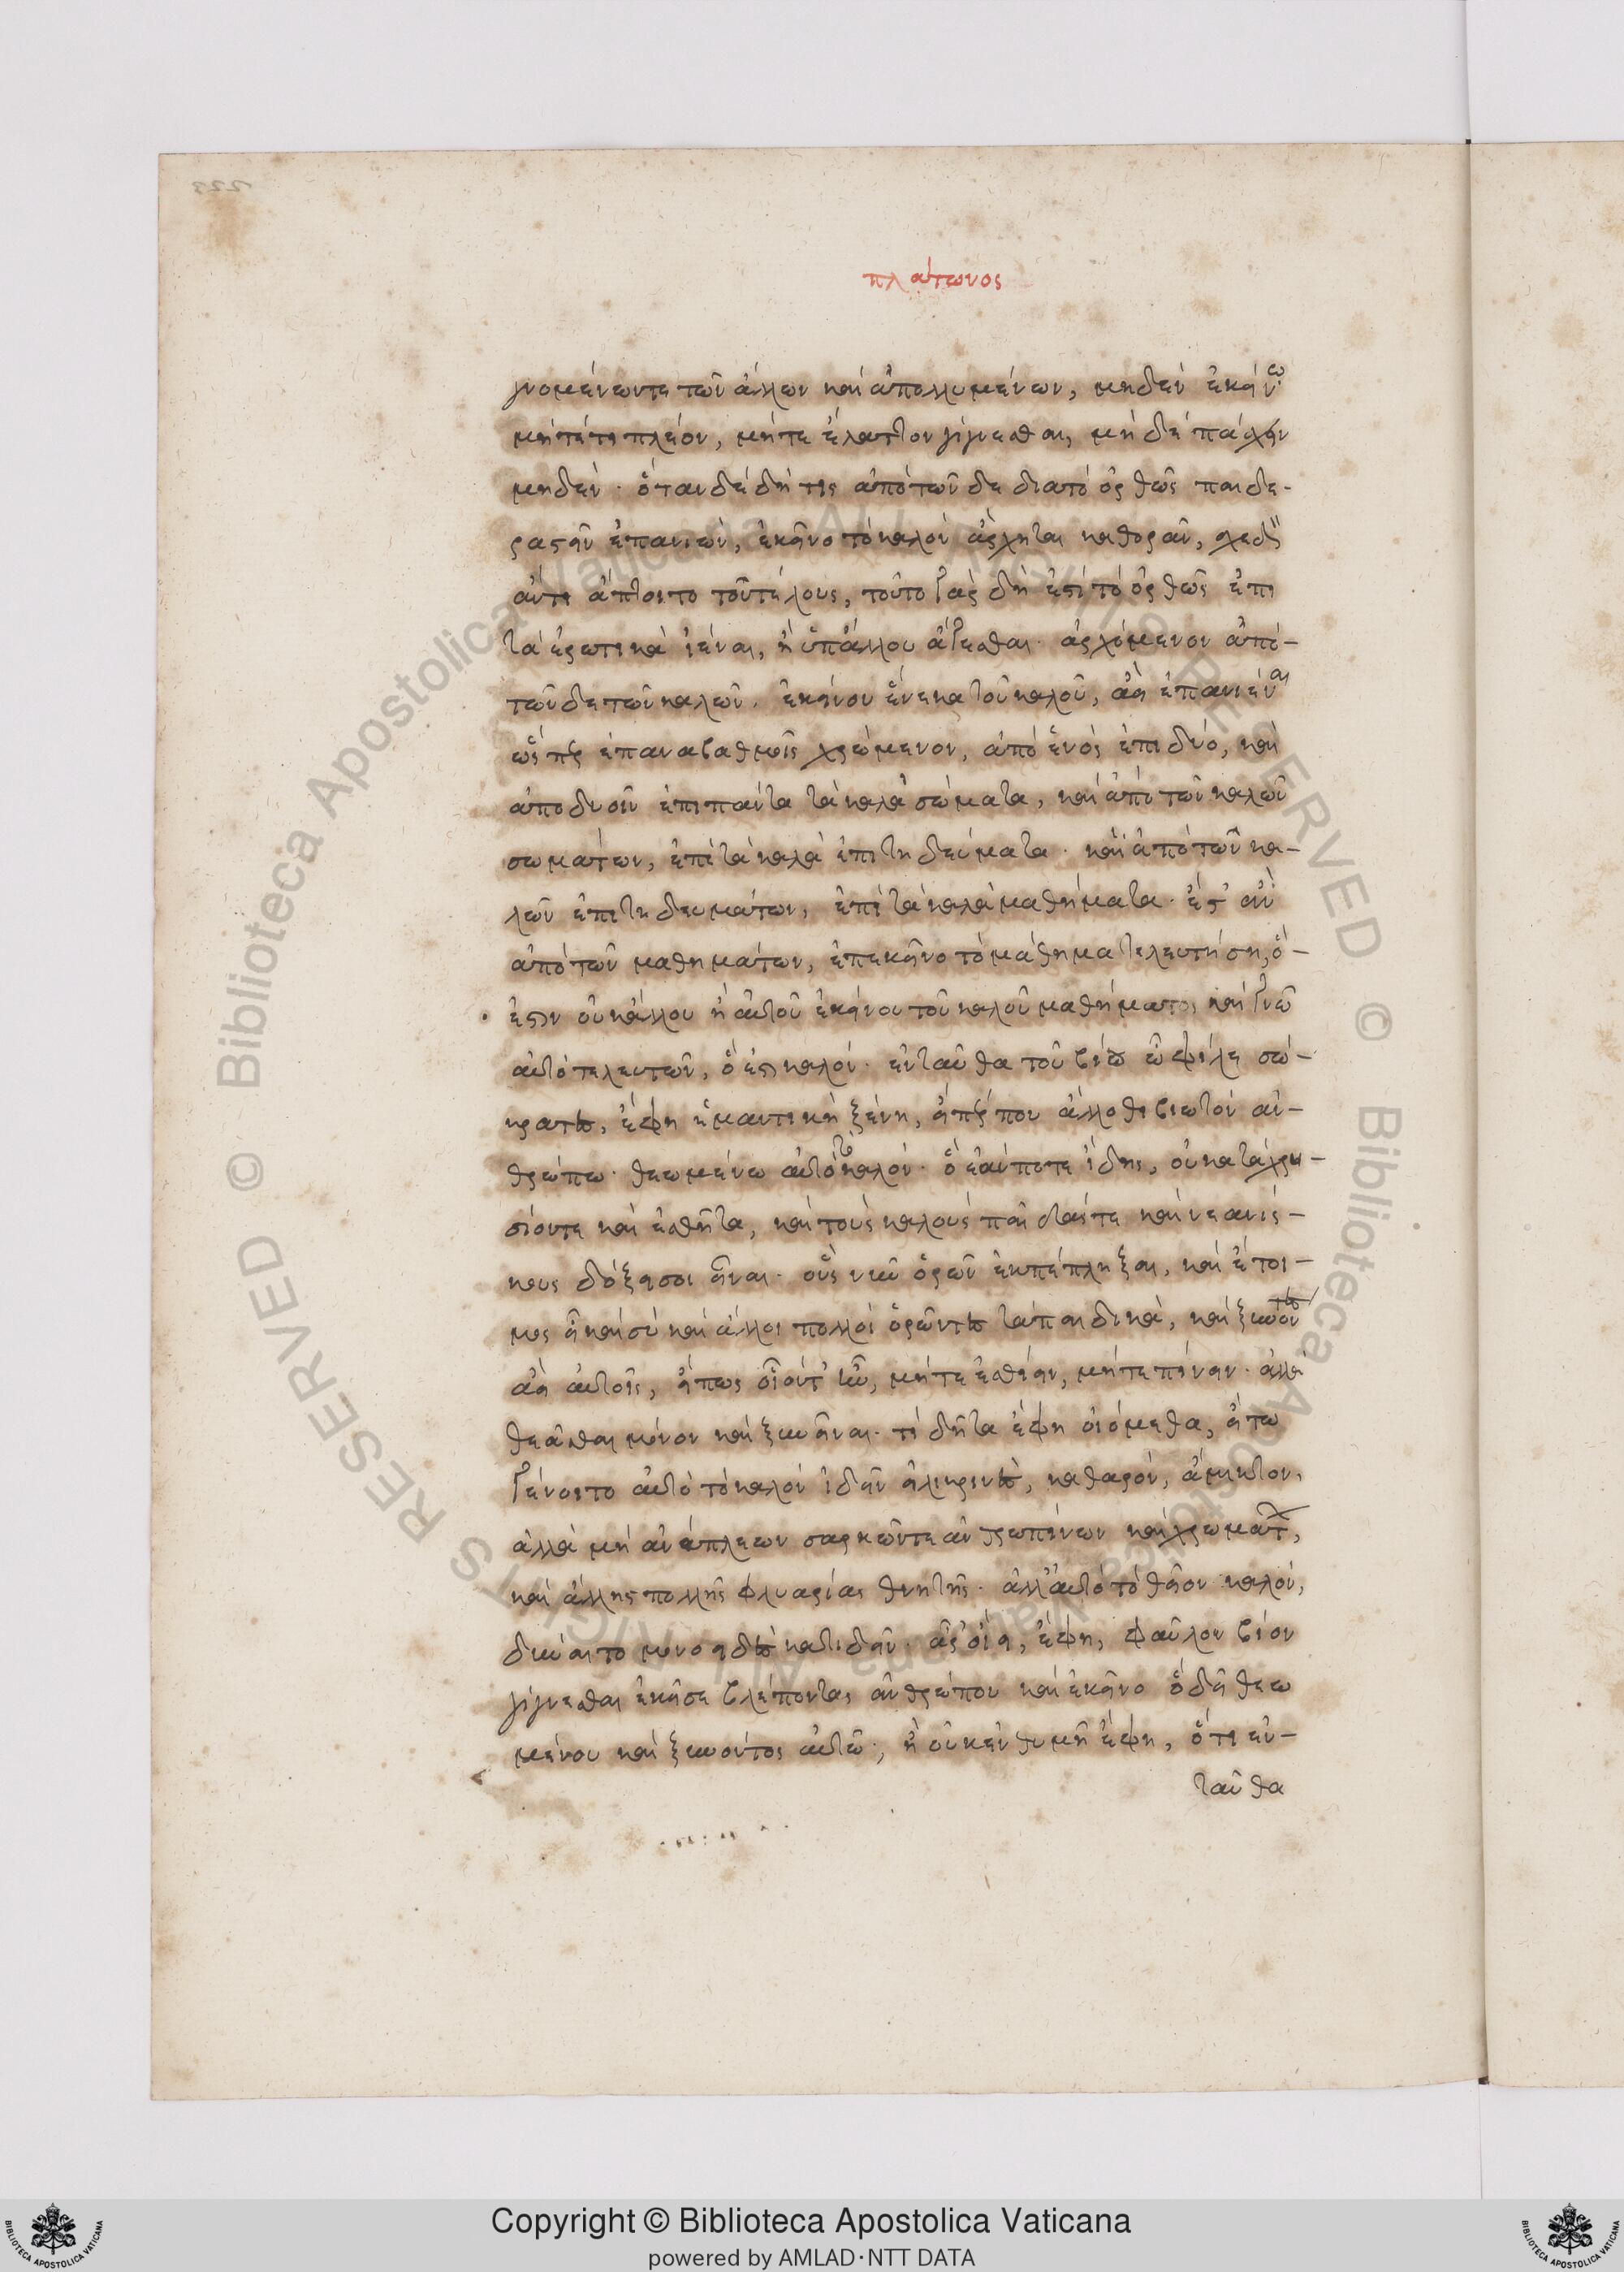 πλάτωνος
γνομένωντε τῶν ἄλλων καὶ ἀπολλυμένων, μηδὲν ἐκείνω
μήτέτι πλέον, μήτε ἔλαττον γίγνεσθαι, μὴ δὲ πάσχειν
μηδὲν. ὅταν δέ δή τις ἀπὸ τῶν δε διατὸ ὀρθῶς παιδε-
ραστεῖν ἐπανιὼν, ἐκεῖνο τὸ καλὸν ἄρχηται καθορᾶν, σχεδὸν
ἄντι ἅπτοιτο τοῦ τέλους, τοῦτο γὰρ δή ἐστὶ τὸ ὀρθῶς ἐπι
τὰ ἐρωτικὰ ἰέναι, ἢ ὑπ' ἄλλου ἄγεσθαι. ἀρχόμενον ἀπὸ-
τῶν δε τῶν καλῶν. ἐκείνου ἕνεκα τοῦ καλοῦ, ἀεὶ ἐπανιέναι
ὥσπερ ἐπαναβαθμοῖς χρώμενον, ἀπὸ ἑνὸς ἐπι δύο, καὶ
ἀπο δυοῖν ἐπι πάντα τὰ καλὰ σώματα, καὶ ἀπὸ τῶν καλῶν
σωμάτων, ἐπὶ τὰ καλὰ ἐπιτηδεύματα. καὶ ἀπὸ τῶν κα-
λῶν ἐπιτηδευμάτων, ἐπὶ τὰ καλὰ μαθήματα. ἔστ' ἂν
ἀπὸ τῶν μαθημάτων, ἐπ' ἐκεῖνο τὸ μάθημα τελευτήση, ὅ-
ἐστιν οὐκ ἄλλου ἢ αὐτοῦ ἐκείνου τοῦ καλοῦ μαθήματος καὶ γνῶ
αὐτὸ τελευτῶν, ὅ ἐστι καλόν. ἐνταῦθα τοῦ βίου ὦ φίλε σώ-
κρατες, ἔφη ἡ μαντικὴ ξένη, εἴπέρ που ἄλλοθι βιωτὸν ἀν-
θρώπω. θεωμένω αὐτὸ τὸ καλόν. ὃ ἐάν ποτε ἴδης, οὐ κατὰ χρυ-
σίοντε καὶ ἐσθῆτα, καὶ τοὺς καλοὺς παῖδάς τε καὶ νεανίσ-
κους δόξει σοι εἶναι. οὓς νῦν ὁρῶν ἐκπέπληξαι, καὶ ἕτοι-
μος εἶ καὶ σὺ καὶ ἄλλοι πολλοὶ ὁρῶντες τὰ παιδικὰ, καὶ ξυνόντες
ἀεὶ αὐτοῖς, εἴπως οἷόντ' ἦν, μήτε ἐσθίειν, μήτε πίνειν. ἀλλὰ
θεᾶσθαι μόνον καὶ ξυνεῖναι. τί δῆτα ἔφη οἰόμεθα, εἴ τω
γένοιτο αὐτὸ τὸ καλὸν ἰδεῖν εἰλικρινὲς, καθαρὸν, ἄμικτον,
ἀλλὰ μὴ ἀνάπλεων σαρκῶντε ἀνθρωπίνων καὶ χρωμάτων,
καὶ ἄλλης πολλῆς φλυαρίας θνητῆς. ἀλλ' αὐτὸ τὸ θεῖον καλὸν,
δύναιτο μονοειδὲς κατιδεῖν. ἆρ' οἴει, ἔφη, φαῦλον βίον
γίγνεσθαι ἐκεῖσε βλέποντας ἀνθρώπου καὶ ἐκεῖνο ὃ δεῖ θεω
μένου καὶ ξυνόντος αὐτῶ; ἢ οὐκ ἐνθυμῆ ἔφη, ὅτι ἐν-
ταῦθα
Copyright © Biblioteca Apostolica Vaticana
powered by AMLAD·NTT DATA